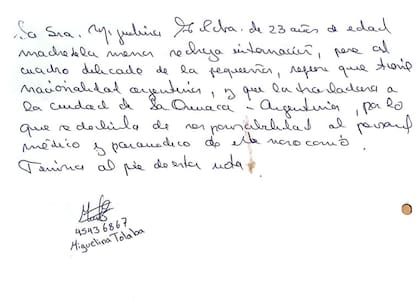 La Sra. Miguelina Tolaba. de 23 años de edad
madre de la menor rechaza internación, pese al
cuadro delicado de la pequeña, refiere que tiene
nacionalidad argentina, y que la trasladara a
la ciudad de La Quiaca - Argentina, por lo
que se deslinda de responsabilidad al personal
médico y paramédico de este nosocomio.
Firma al pie de esta nota.
45436867
Miguelina Tolaba